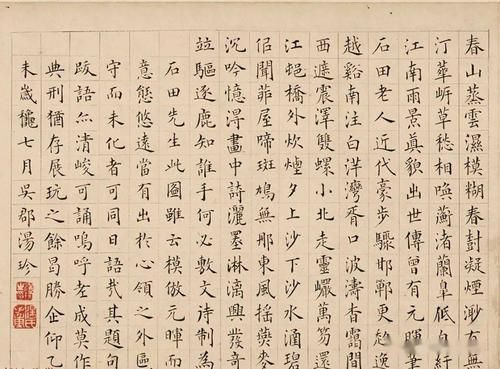 春山蒸雲濕模糊春封凝煙渺有無
汀華岸草愁相喚蘅渚蘭皐低
江南雨景真貌出世傳曾有元暉筆
石田老人近代豪步驟邯鄲更趂逸
越谿南注白洋灣胥口波濤杳靄間
西遮震澤雙螺小北走靈巖萬笏還
江蜺橋外炊煙夕上沙下沙水酒碧
佀聞茆屋啼斑鳩無那東風搖麥
沉吟憶淂畫中詩灑墨淋漓興發奇
竝驅逐鹿知誰手何必敷文诗制為
石田先生此圖雖云模倣元暉而
意態悠遠當有出於心領之外區
守而未化者可同日語哉其題句
跋語亦清峻可誦嗚呼老成莫作
典刑猶存展玩之餘曷勝企仰乙
未歲龝七月吳郡湯珍